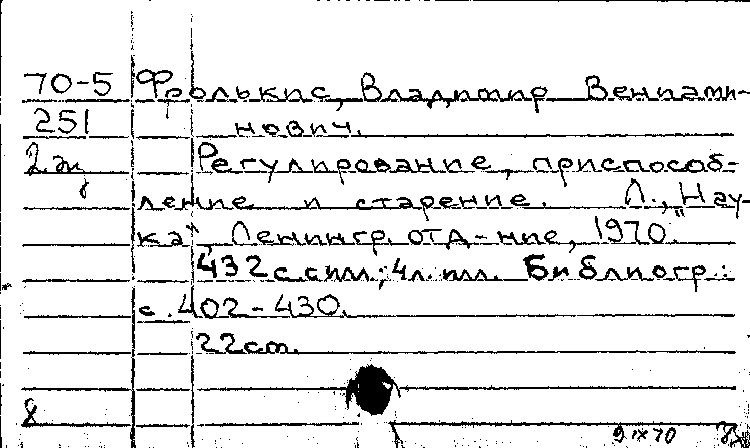 70-5 Фролькис, Владимир Вениами-
251 нович.
2 эк Регулирование, приспособ-
ление и старение. Л., „Нау-
ка“, Ленингр. отд-ние, 1970.
432 с. с илл.; 4 л. илл. Библиогр.:
с. 402-430.
22 см.
8
9 IX 70